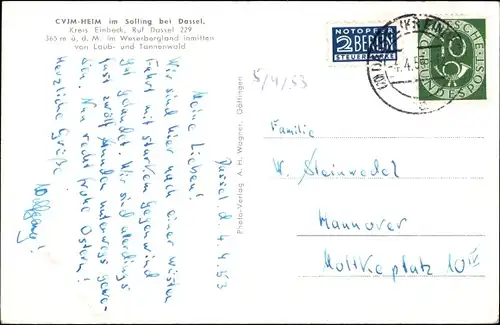 CVJM-HEIM im Solling bei Dassel.
Kreis Einbeck, Ruf Dassel 229
365 m ü. d. M. im Weserbergland inmitten
von Laub- und Tannenwald
Dassel d. 4.4.53
Meine Lieben!
Wir sind hier nach einer wüsten
Fahrt mit starkem Gegenwind
gut gelandet. Wir sind allerdings
fast zwölf Stunden unterwegs gewe-
sen. Nun recht frohe Ostern!
Herzliche Grüße
Wolfgang!
Photo-Verlag A. H. Wagner, Göttingen
5/4/53
NOTOPFER
2 BERLIN
STEUERMARKE
DEUTSCHE BUNDESPOST
10
Familie
W. Steinwedel
Hannover
Moltkeplatz 10 II